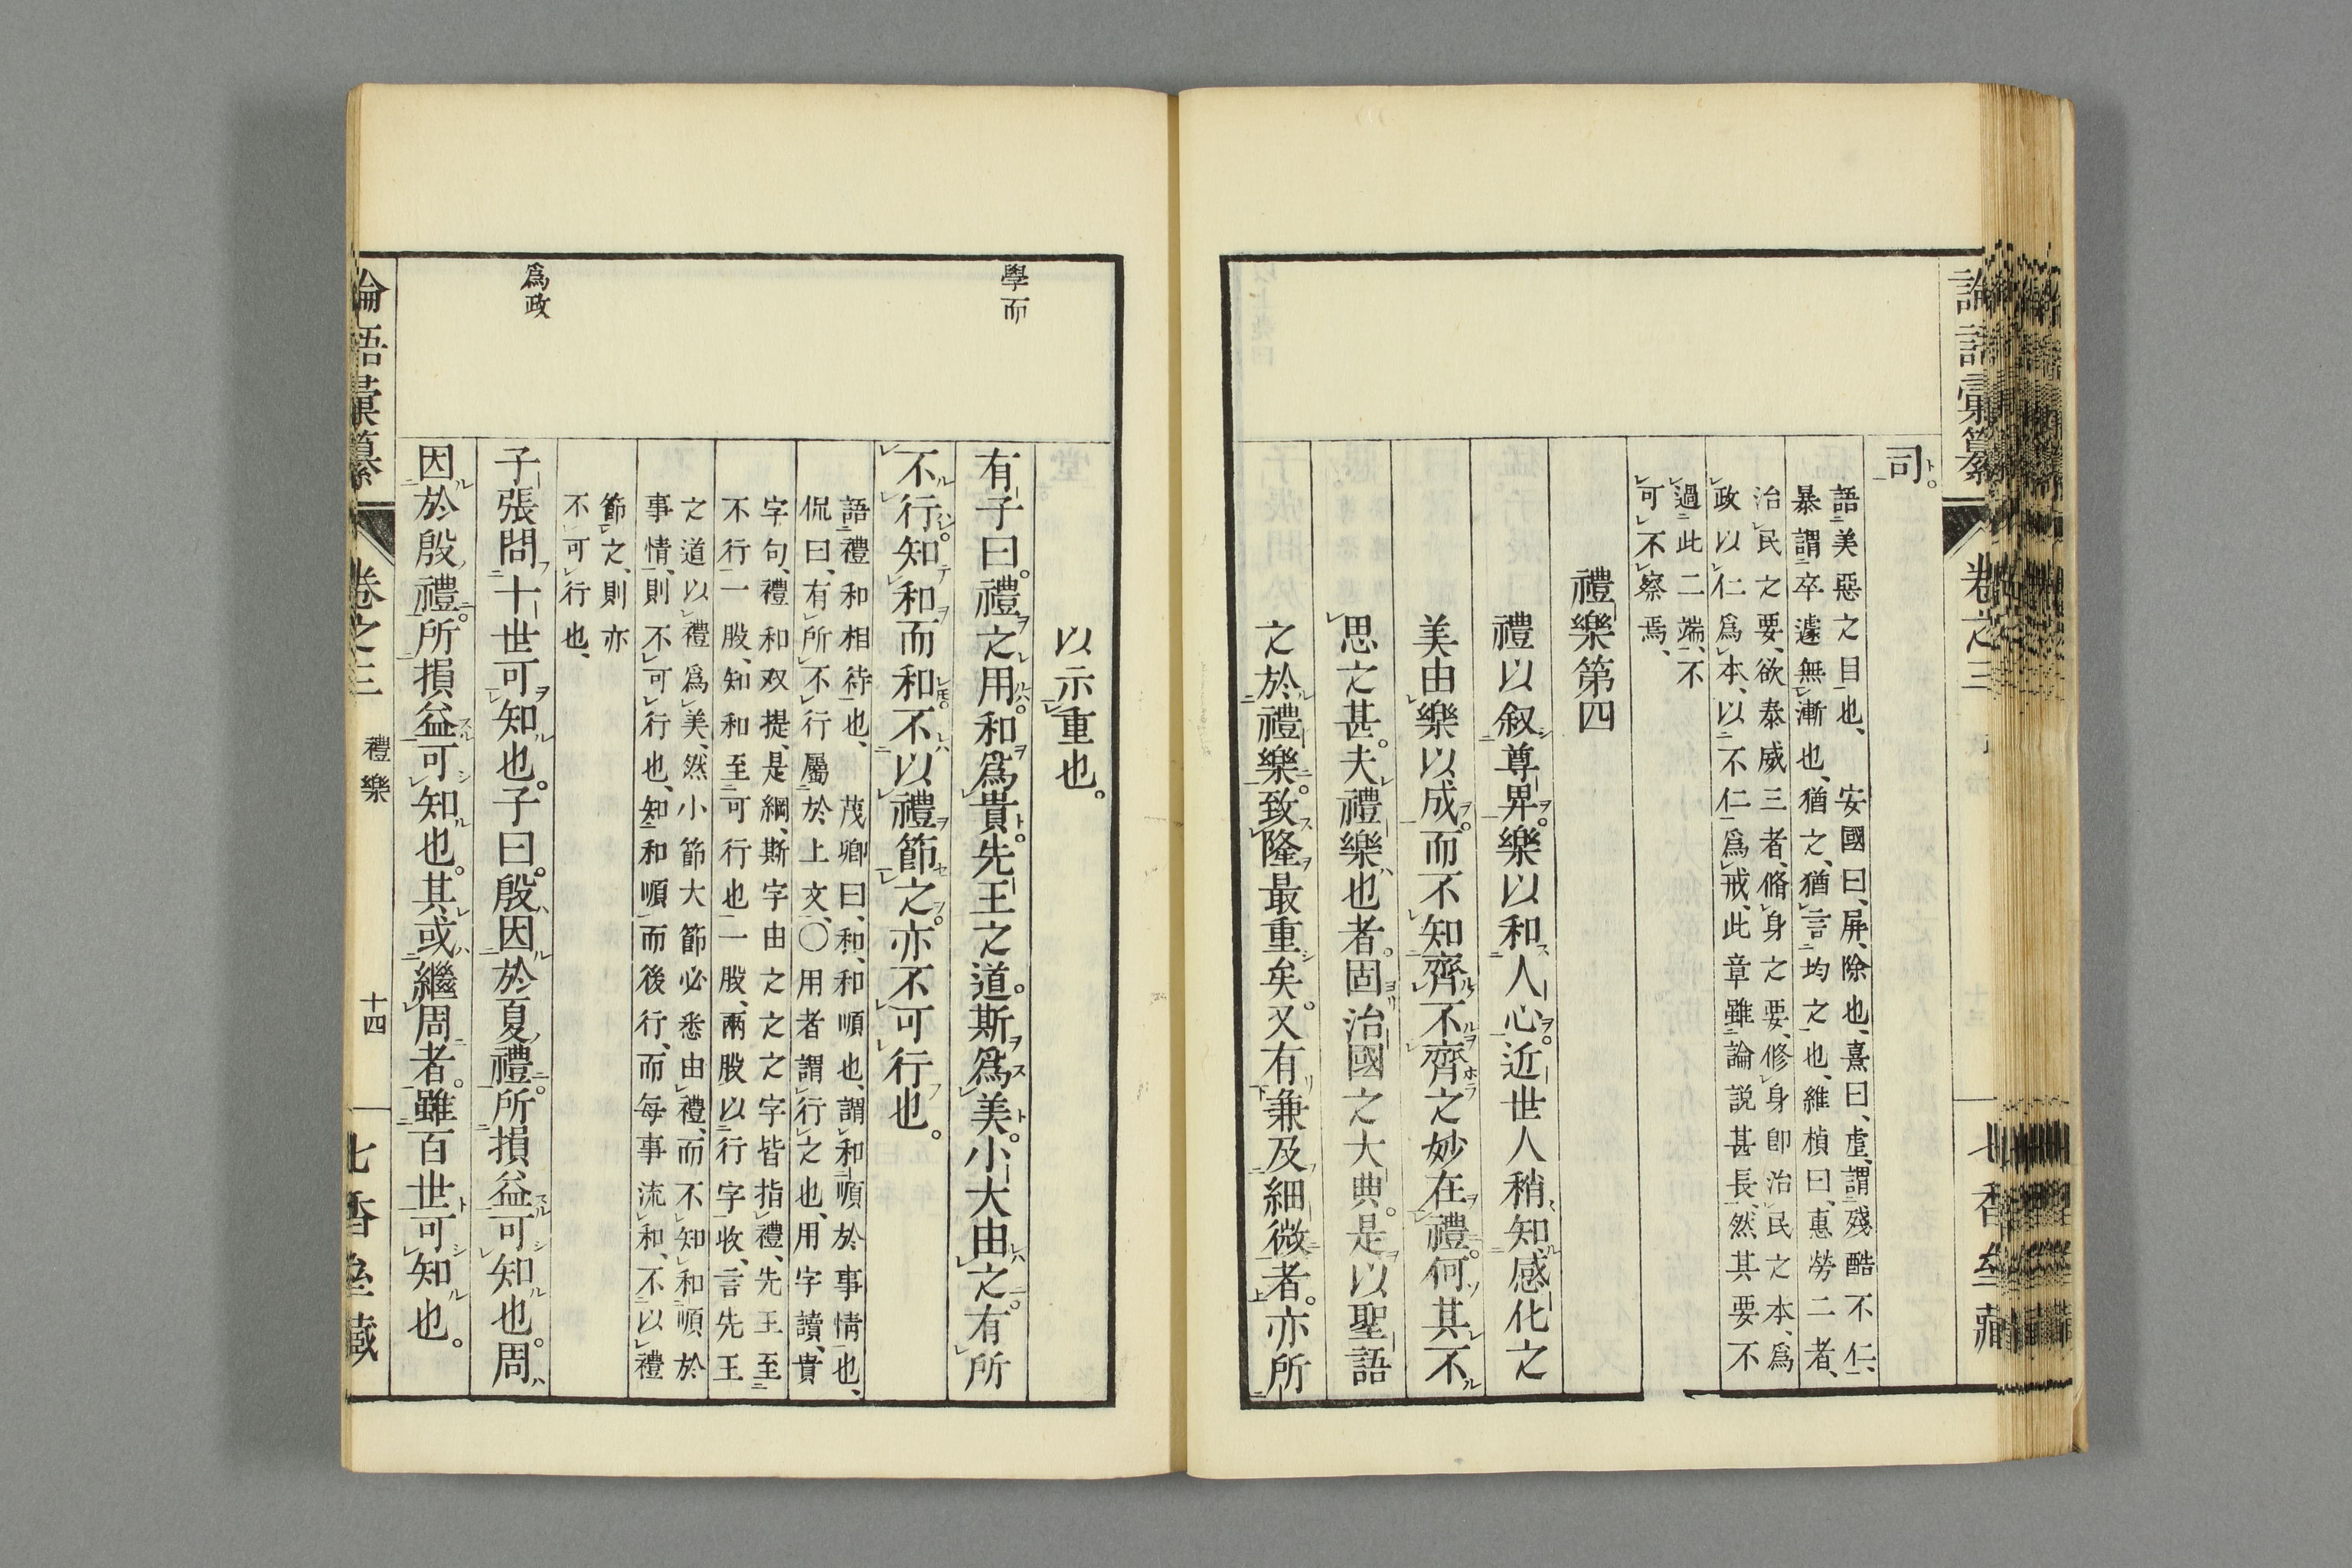 司。
語美惡之目也、　安國曰、屏、除也、熹曰、虐、謂殘酷不仁、
暴謂卒遽無漸也、猶之、猶言均之也、維楨曰、惠勞二者、
治民之要、欲泰威三者、脩身之要、修身即治民之本、爲
政以仁爲本、以不仁爲戒、此章雖論説甚長、然其要不
過此二端、不
可不察焉、
禮樂第四
禮以叙尊卑。樂以和人心。近世人稍知感化之
美由樂以成。而不知齊不齊之妙在禮。何其不
思之甚。夫禮樂也者。固治國之大典。是以聖語
之於禮樂。致隆最重矣。又有兼及細微者。亦所
以示重也。
學而
有子曰。禮之用。和爲貴。先王之道。斯爲美。小大由之。有所
不行。知和而和。不以禮節之。亦不可行也。
語禮和相待也、　茂卿曰、和、和順也、謂和順於事情也、
侃曰、有所不行屬於上文、〇用者謂行之也、用字讀、貴
字句、禮和双提、是綱、斯字由之之字皆指禮、先王至
不行一股、知和至可行也一股、兩股以行字收、言先王
之道以禮爲美、然小節大節必悉由禮、而不知和順於
事情、則不可行也、知和順而後行、而每事流和、不以禮
節之、則亦
不可行也、
爲政
子張問。十世可知也。子曰。殷因於夏禮。所損益可知也。周
因於殷禮。所損益可知也。其或繼周者。雖百世可知也。
論語彙纂
卷之三
禮樂
十四
七香堂藏